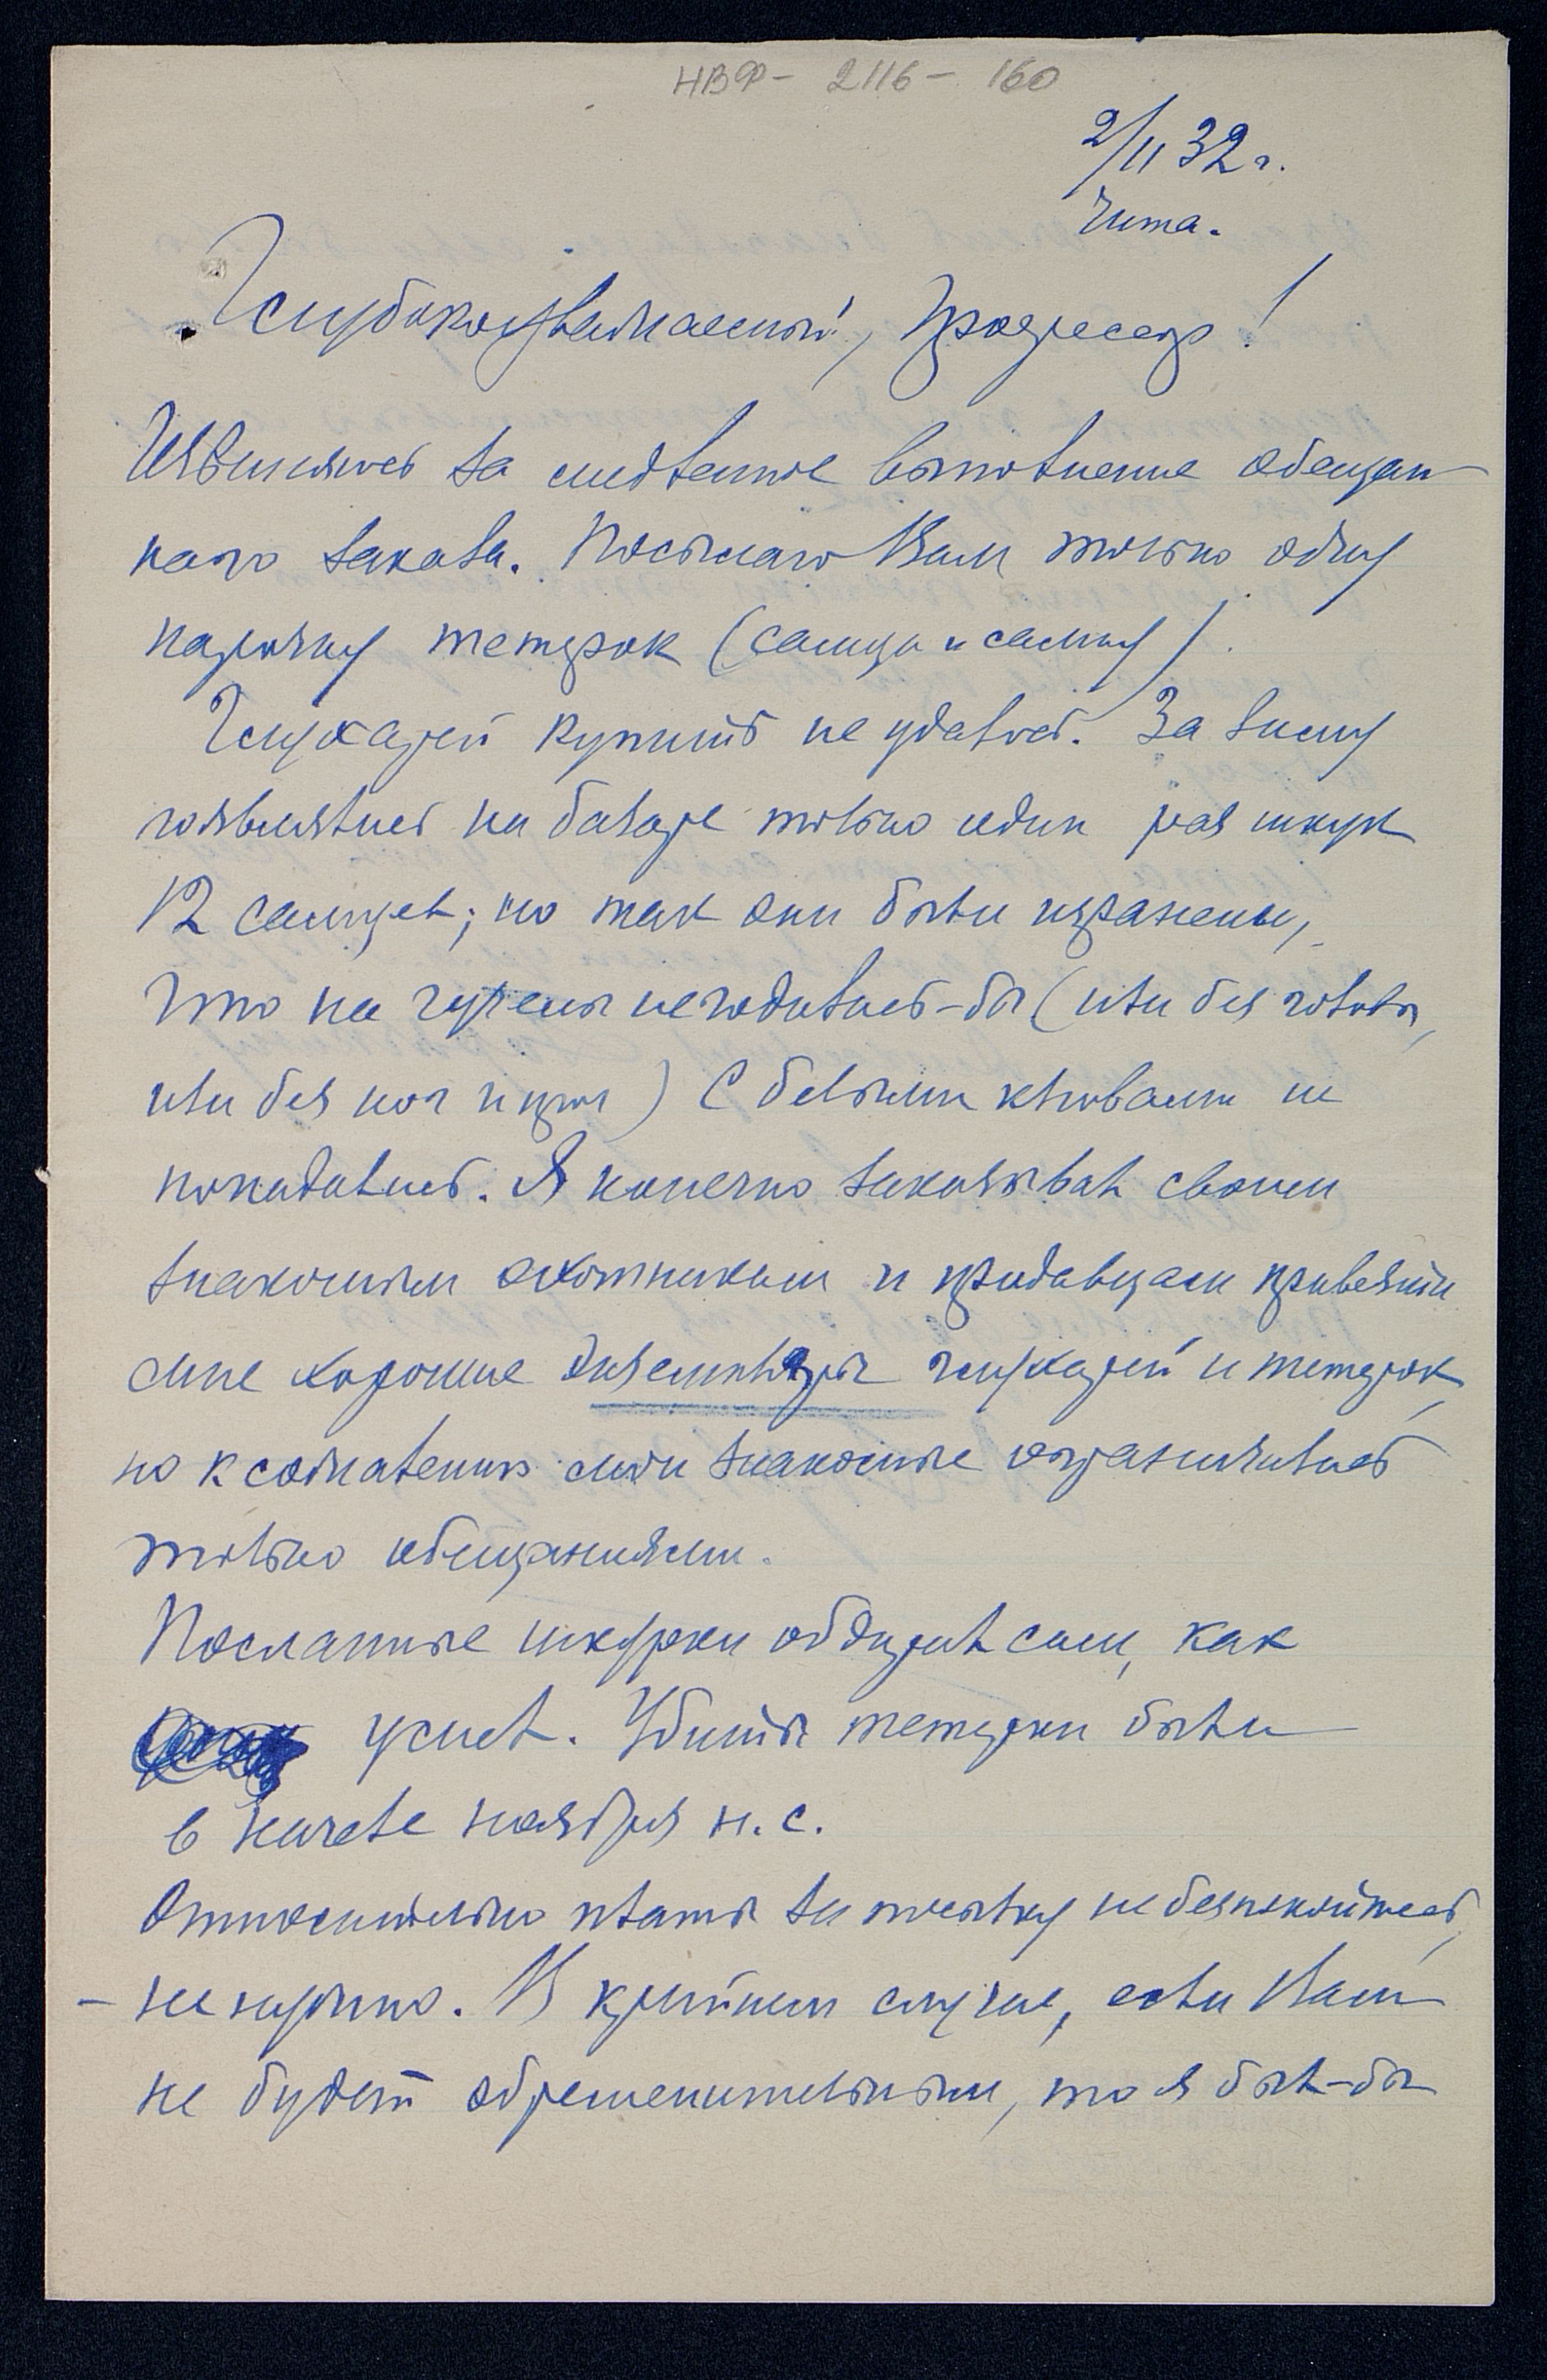 НВФ - 2116 - 160
2/II 32 г.
Чита.
Глубокоуважаемый, профессор!
Извиняюсь за медленное выполнение обещан-
наго заказа. Посылаю Вам только одну
парочку тетерок (самца и самку).
Глухарей купить не удалось. За зиму
появлялись на базаре только один раз штук
12 самцев; но так они были изранены,
что на чучела не годились-бы (или без головы,
или без ног и проч) С белыми клювами не
попадались. Я конечно заказывал своим
знакомым охотникам и продавцам привезти
мне хорошие экземпляры глухарей и тетерок,
но к сожалению мои знакомые ограничились
только обещаниями.
Посланные шкурки обдирал сам, как
успел. Убиты тетерки были
в начале ноября н.с.
Относительно платы за посылку не безпокойтесь,
- не нужно. В крайнем случае, если Вам
не будет обременительным, то я был-бы